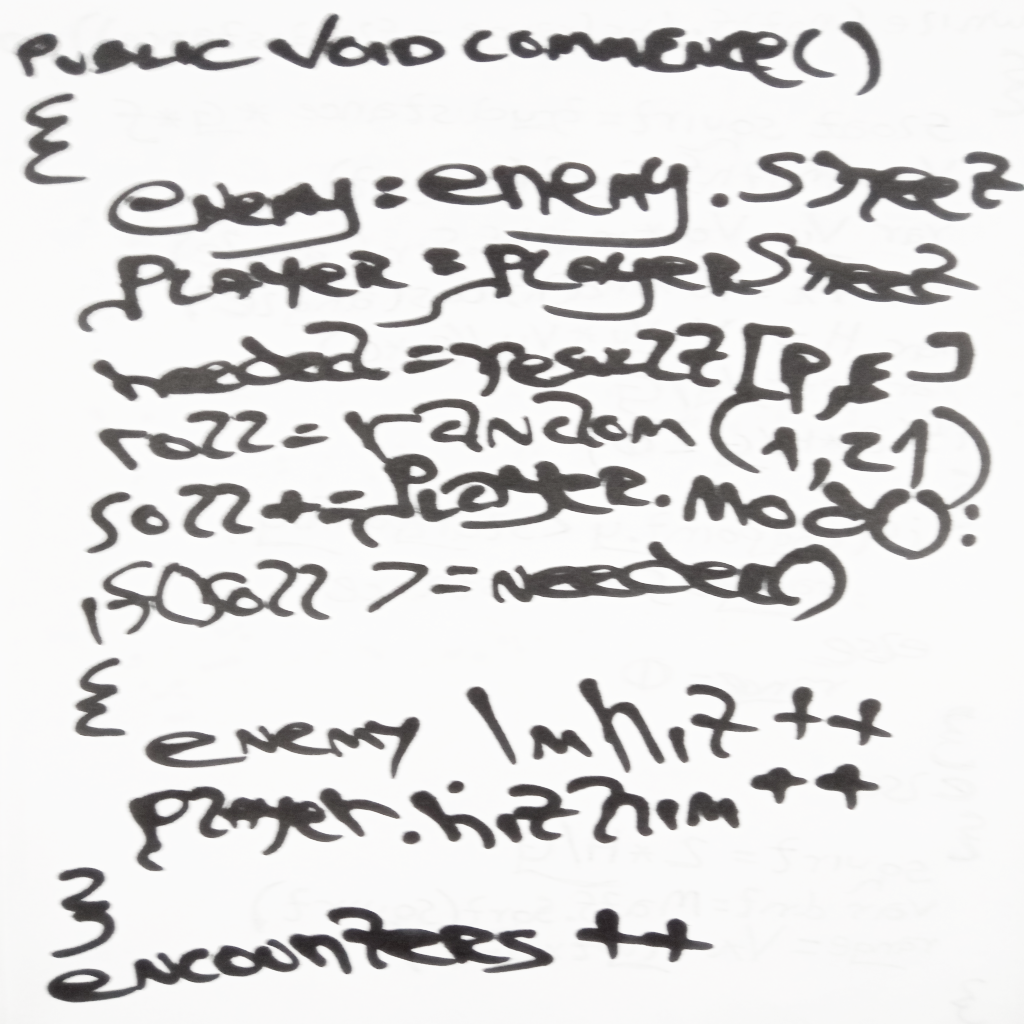 PUBLIC VOID COMMENCE()
{
enemy = enemy.Street
PLAYER = PLAYER Street
needed = result [P,E]
roll = random (1,21)
soll += Player.Mod():
if (soll >= needed)
{
enemy ImHit ++
player.hitHim ++
}
encounters ++